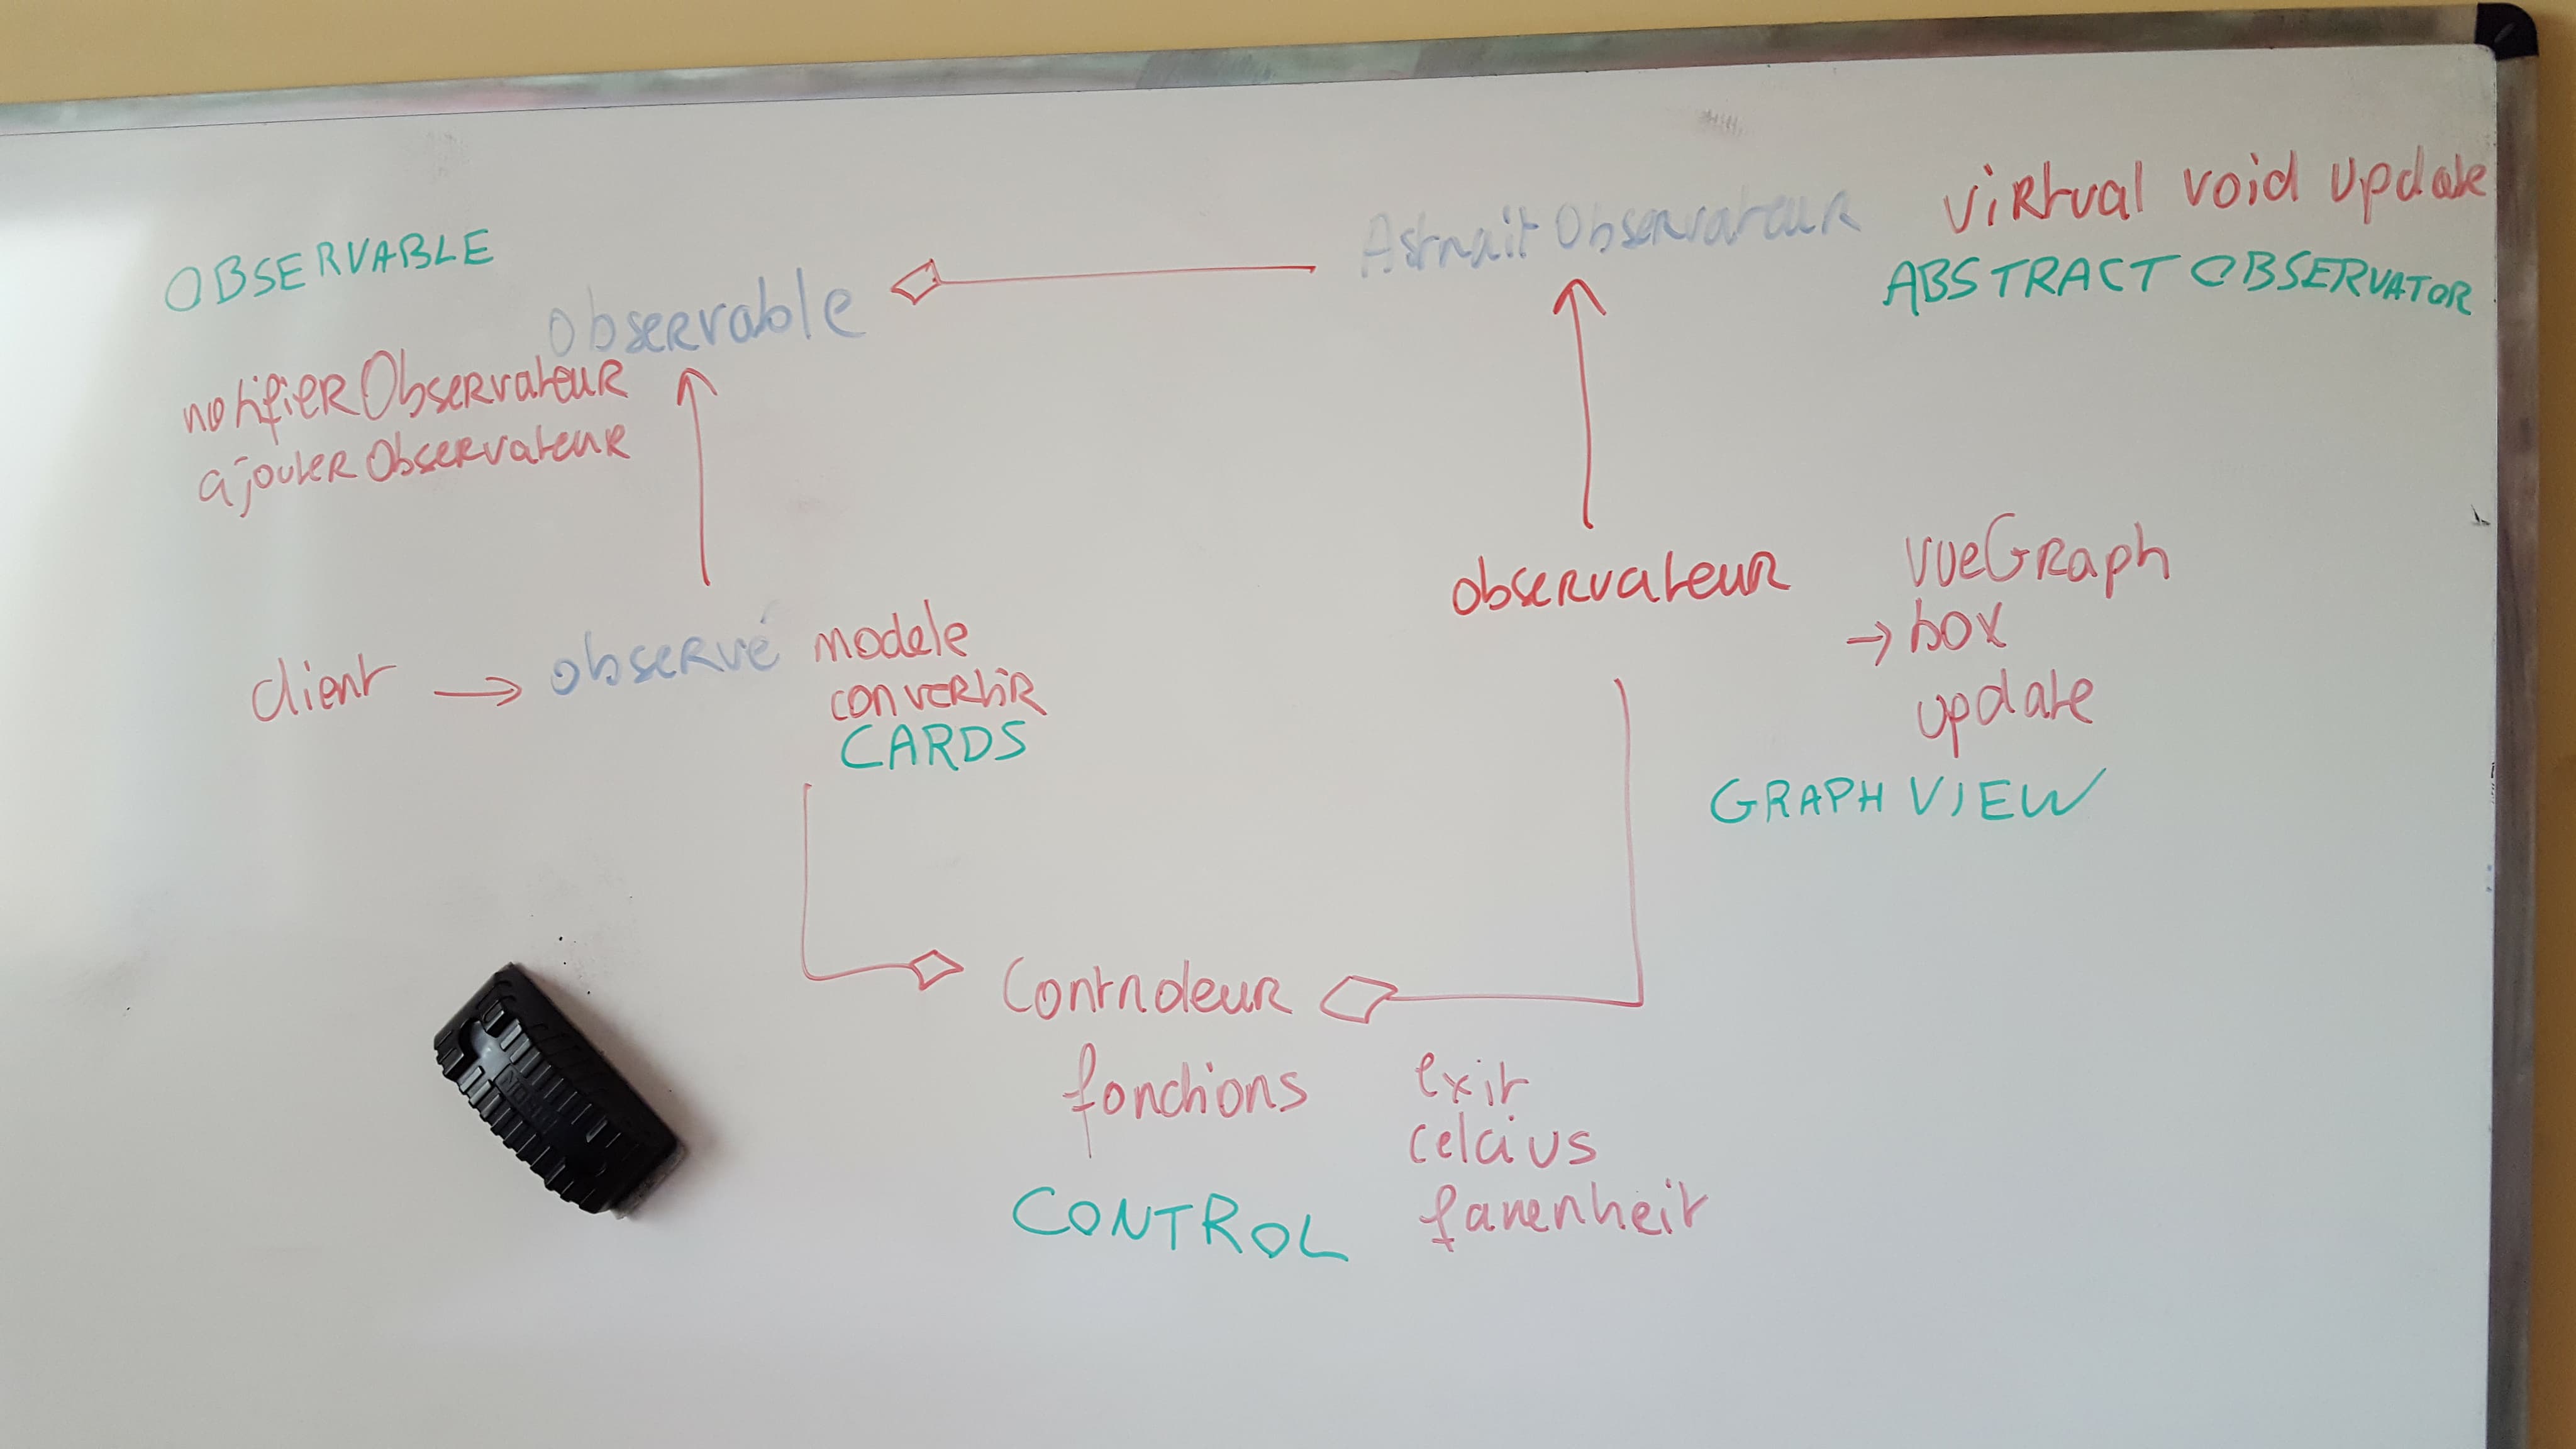 OBSERVABLE
Observable
notifierObservateur
ajouterObservateur
AstraitObservateur
virtual void update
ABSTRACT OBSERVATOR
client → observé
modele
convertir
CARDS
observateur
vueGraph
→ box
update
GRAPH VIEW
Controleur
fonctions
exit
celcius
farenheit
CONTROL